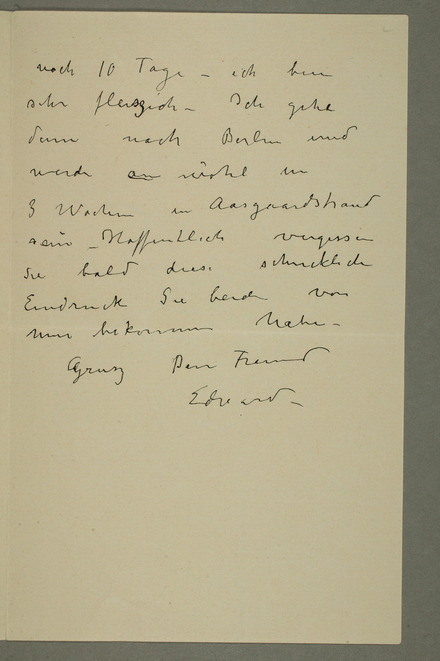 noch 10 Tage – ich bin
sehr fleiszich – Ich gehe
dann nach Berlin und
werde an wohl in
3 Wochen in Aasgaardstrand
sein – Hoffentlich vergessen
Sie bald diese schrecklich
Eindruck Sie beide von
mir bekommen habe –
Grusz Dein Freund
Edvard –